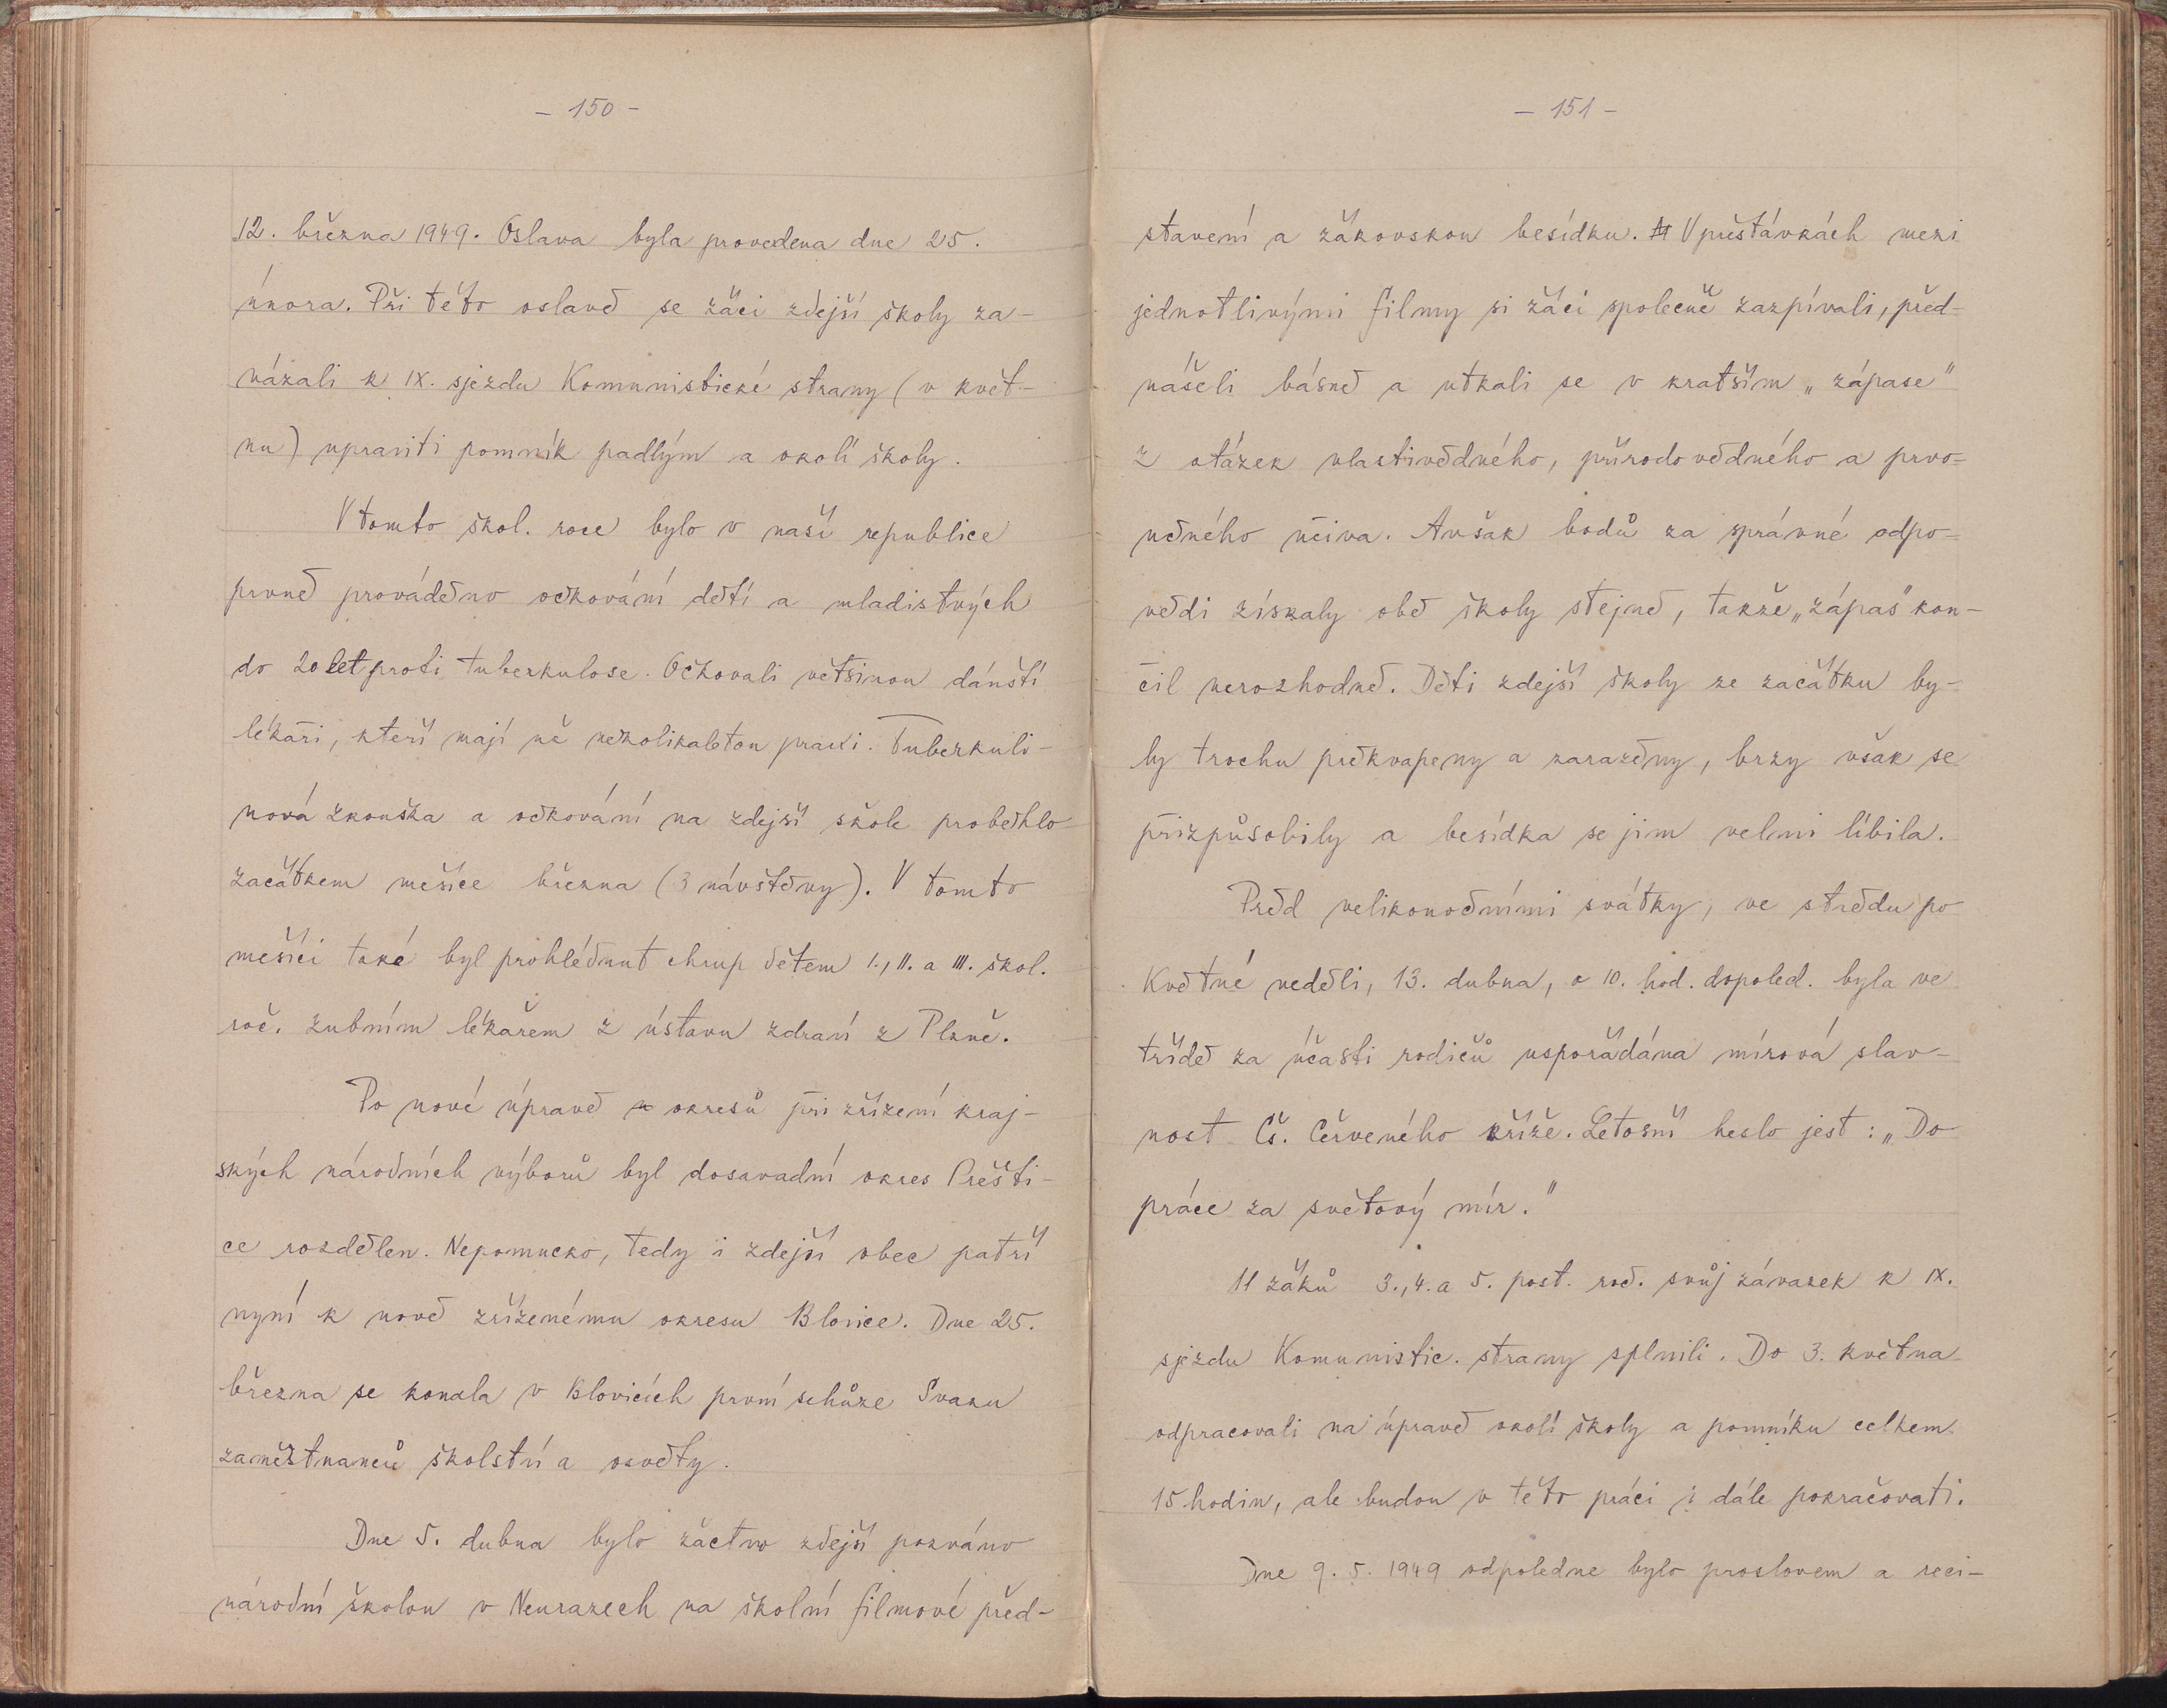 - 150 -
12. března 1949. Oslava byla provedena dne 25.
února. Při této oslavě se žáci zdejší školy za-
vázali k IX. sjezdu Komunistické strany (v květ-
nu) upraviti pomník padlým a okolí školy.
V tomto škol. roce bylo v naší republice
prvně prováděno očkování dětí a mladistvých
do 20 let proti tuberkulose. Očkovali většinou dánští
lékaři, kteří mají už několikaletou praxi. Tuberkuli-
nová zkouška a očkování na zdejší škole proběhlo
začátkem měsíce března (3 návštěvy). V tomto
měsíci také byl prohlédnut chrup dětem I., II. a III. škol.
roč. zubním lékařem z ústavu zdraví z Plzně.
Po nové úpravě okresů při zřízení kraj-
ských národních výborů byl dosavadní okres Přešti-
ce rozdělen. Nepomucko, tedy i zdejší obec patří
nyní k nově zřízenému okresu Blovice. Dne 25.
března se konala v Blovicích první schůze Svazu
zaměstnanců školství a osvěty.
Dne 5. dubna bylo žactvo zdejší pozváno
národní školou v Neurazech na školní filmové před-
- 151 -
stavení a žákovskou besídku. V přestávkách mezi
jednotlivými filmy si žáci společně zazpívali, před-
nášeli básně a utkali se v kratším „zápase"
z otázek vlastivědného, přírodovědného a prvo-
učného učiva. Avšak bodů za správné odpo-
vědi získaly obě školy stejně, takže „zápas" kon-
čil nerozhodně. Děti zdejší školy ze začátku by-
ly trochu překvapeny a zaraženy, brzy však se
přizpůsobily a besídka se jim velmi líbila.
Před velikonočními svátky, ve středu po
Květné neděli, 13. dubna, o 10. hod. dopoled. byla ve
třídě za účasti rodičů uspořádána mírová slav-
nost Čs. Červeného kříže. Letošní heslo jest: „Do
práce za světový mír."
11 žáků 3., 4. a 5. post. roč. svůj závazek k IX.
sjezdu Komunistic. strany splnili. Do 3. května
odpracovali na úpravě okolí školy a pomníku celkem
15 hodin, ale budou v této práci i dále pokračovati.
Dne 9. 5. 1949 odpoledne bylo proslovem a reci-